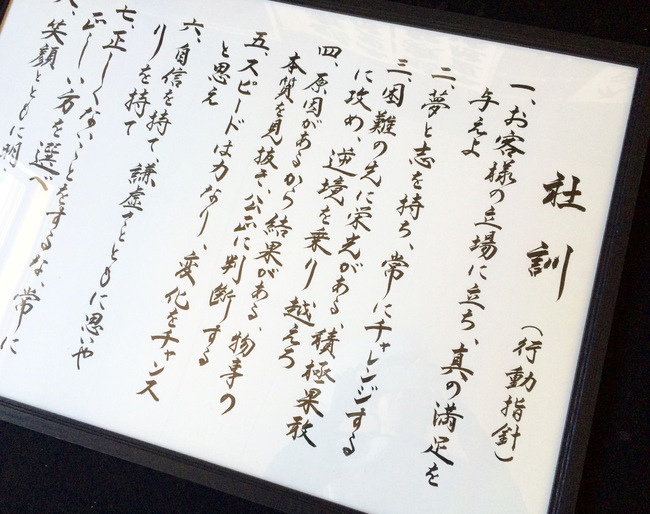 社訓（行動指針）
一、お客様の立場に立ち、真の満足を
与えよ
二、夢と志を持ち、常にチャレンジする
三、困難の先に栄光がある、積極果敢
に攻め、逆境を乗り越えろ
四、原因があるから結果がある、物事の
本質を見抜き、公正に判断する
五、スピードは力なり、変化をチャンス
と思え
六、自信を持て、謙虚さとともに思いや
りを持て
七、正しくないことをするな、常に
正しい方を選べ
八、笑顔とともに明